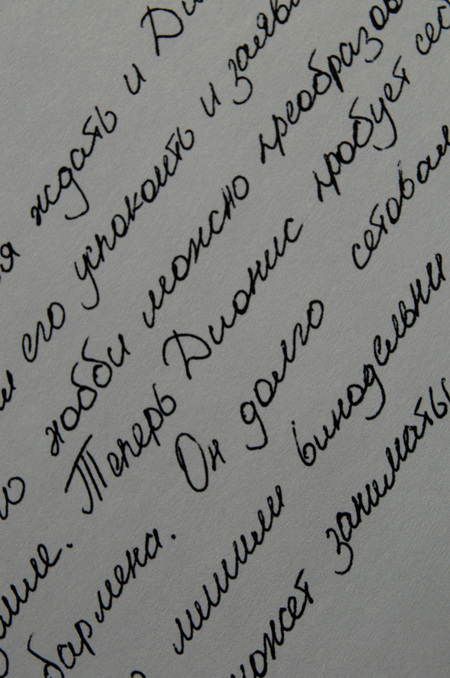 ждать и Ди
его успокоить и заяв
хобби можно преобразов
Теперь Дионис пробует се
бармена. Он долго сетовал
лишили винодельни
может заниматьс